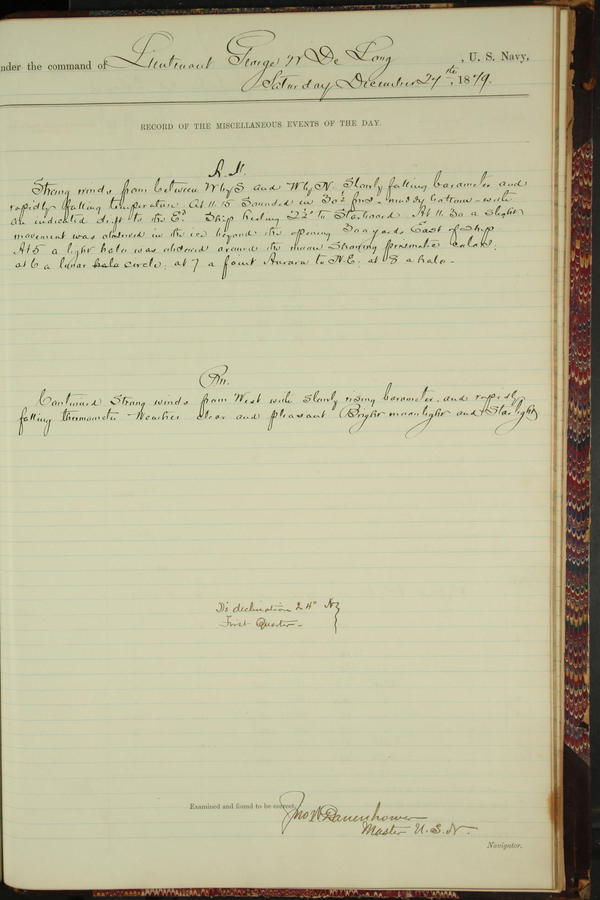 nder the command of Lieutenant George W De Long, U. S. Navy,
Saturday December 27th, 1879.
RECORD OF THE MISCELLANEOUS EVENTS OF THE DAY.
A.M.
Strong winds from between W by S and W by N. Slowly falling barometer and
rapidly falling temperature. At 11.15 Sounded in 30½ fms - muddy bottom - with
an indicated drift to the Ed. Ship heeling 2½° to Starboard. At 11.30 a slight
movement was observed in the ice beyond the opening 300 yards East of Ship
At 5 a light halo was observed around the moon Showing prismatic colors;
at 6 a lunar halo circle; at 7 a faint Aurora to N.E; at 8 a halo -
P.M.
Continued Strong winds from West with Slowly rising barometer and rapidly
falling thermometer - Weather clear and pleasant (Bright moonlight and Starlight)
D's declination 24° N
First Quarter -
Examined and found to be correct.
Jno W Danenhower
Master U.S.N.
Navigator.